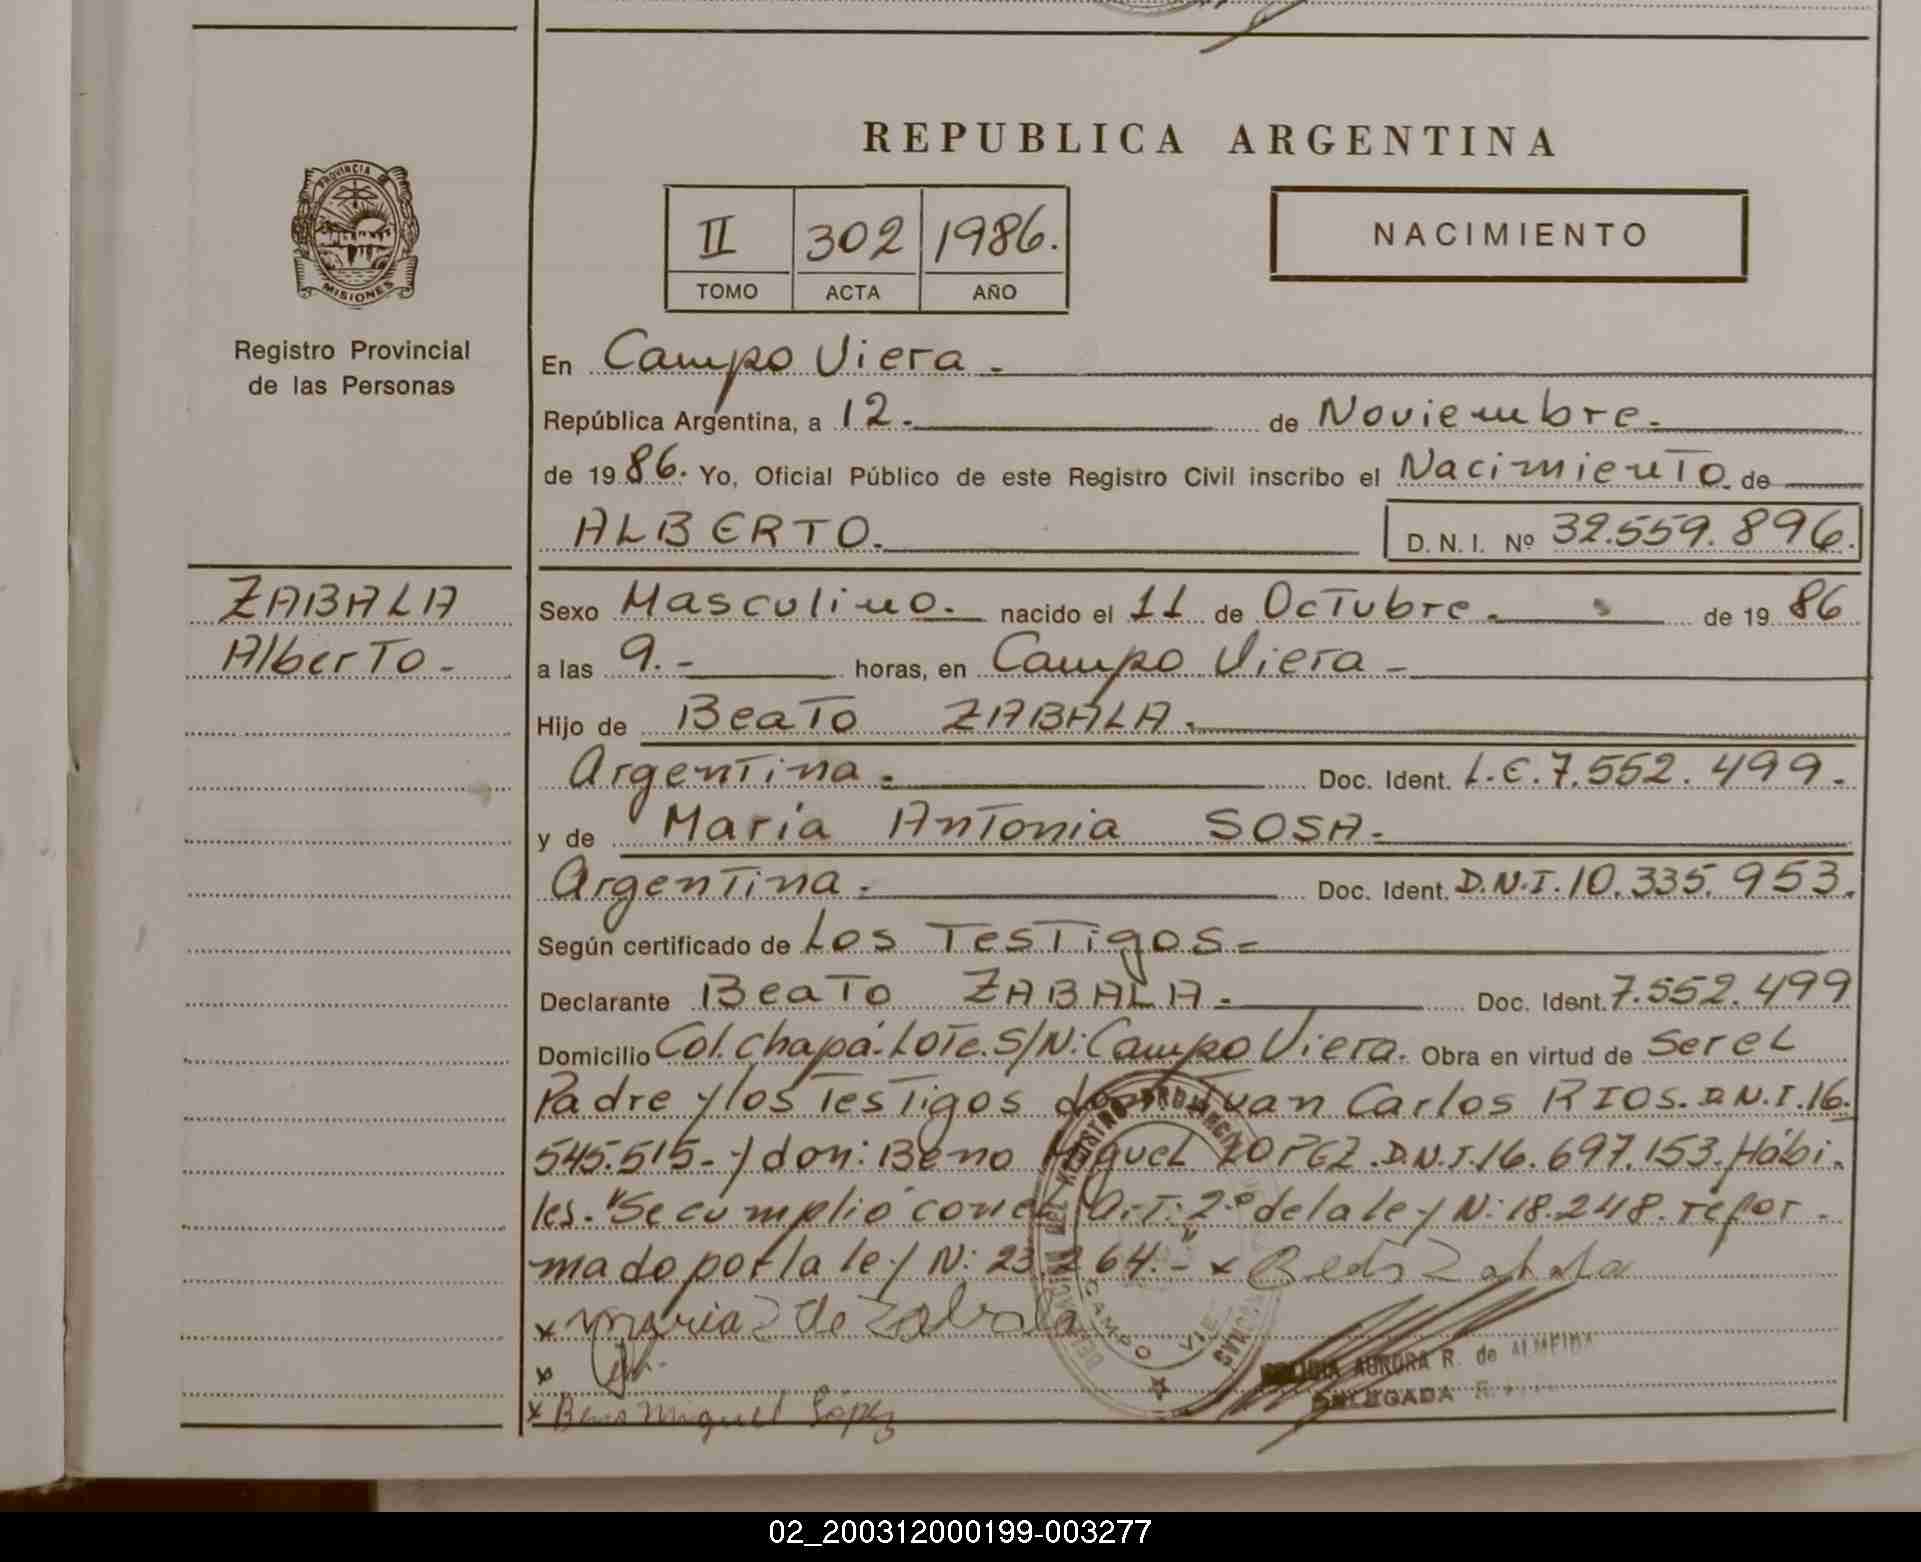 REPUBLICA ARGENTINA
PROVINCIA DE
MISIONES
Registro Provincial
de las Personas
II 302 1986.
TOMO ACTA AÑO
NACIMIENTO
En Campo Viera.
República Argentina, a 12. de Noviembre.
de 19 86. Yo, Oficial Público de este Registro Civil inscribo el Nacimiento. de
ALBERTO. D. N. I. Nº 32.559.896.
ZABALA
Alberto-
Sexo Masculino. nacido el 11 de Octubre. de 19 86
a las 9.- horas, en Campo Viera-
Hijo de Beato ZABALA.
Argentina. Doc. Ident. L.E.7.552.499.
y de María Antonia SOSA-
Argentina. Doc. Ident. D.N.I.10.335.953.
Según certificado de Los Testigos-
Declarante Beato ZABALA. Doc. Ident. 7.552.499
Domicilio Col. Chapá. Lote. S/N: Campo Viera. Obra en virtud de Ser eL
Padre y los Testigos don: Juan Carlos RIOS. D.N.I. 16.
545.515- y don: Beno Miguel LOPEZ. D.N.I.16.697.153. Hábi-
les. "Se cumplió con el Art: 2º de la ley N: 18.248. refor-
mado por la ley N: 23.264."- x Beato Zabala
x Maria S de Zabala
x
x Beno Miguel López
DELEGACION DEL REGISTRO PROVINCIAL DE LAS PERSONAS
CAMPO VIERA
AURORA R. de ALMEIDA
DELEGADA
02_200312000199-003277